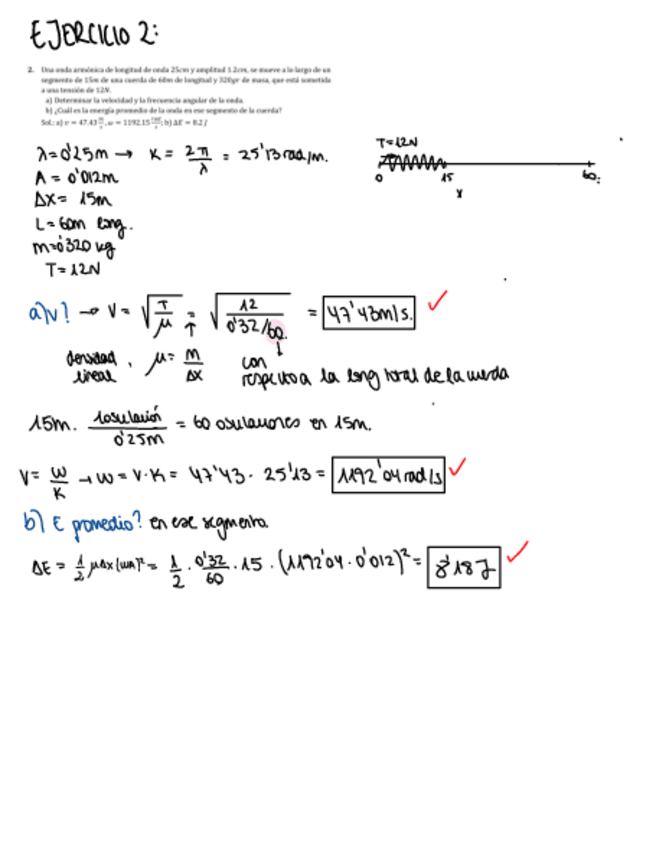 EJERCICIO 2:
2. Una onda armónica de longitud de onda 25cm y amplitud 1.2cm, se mueve a lo largo de un
segmento de 15m de una cuerda de 60m de longitud y 320gr de masa, que está sometida
a una tensión de 12N.
a) Determinar la velocidad y la frecuencia angular de la onda.
b) ¿Cuál es la energía promedio de la onda en ese segmento de la cuerda?
Sol.: a) v = 47.43 m/s, ω = 1192.15 rad/s; b) ΔE = 8.2 J
λ = 0'25m → K = 2π/λ = 25'13 rad/m.
A = 0'012m
Δx = 15m
L = 60m long.
m = 0'320 kg
T = 12N
T = 12N
0 15 60:
x
a) v? → V = √(T/μ) = √(12/(0'32/60.)) = 47'43 m/s. ✓
densidad lineal, μ = m/Δx
con respecto a la long total de la cuerda
15m. 1 oscilación/0'25m = 60 oscilaciones en 15m.
V = w/K → w = V·K = 47'43 · 25'13 = 1192'04 rad/s ✓
b) E promedio? en ese segmento.
ΔE = 1/2 μΔx(wA)² = 1/2 · 0'32/60 · 15 · (1192'04 · 0'012)² = 8'18 J ✓